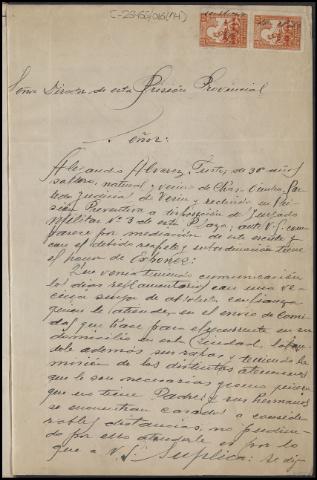 C-23455/016 (14)
Señor Director de esta Prisión Provincial
Señor:
Alejandro Alvarez Fustes, de 38 años,
soltero, natural y vecino de Chas-Oimbra, Par-
tido judicial de Verin y recluido en Pri-
sión Preventiva a disposición del Juzgado
Militar Nº 3 de esta Plaza, ante V.S. com-
parece por mediación de este escrito y
con el debido respeto y subordinación tiene
el honor de Exponer:
Que venia teniendo comunicación
los dias reglamentarios con una ve-
cina suya de absoluta confianza
quien le atendia, en el envio de comi-
das que hace para el recurrente en su
domicilio en esta Ciudad, laban-
dole además sus ropas y teniendo la
misión de las distintas atenciones
que le son necesarias
que no tiene Padres y sus hermanos
se encuentran casados a conside-
rables distancias, no pudien-
do por ello atenderle es por lo
que a V.S. Suplica: se dig-